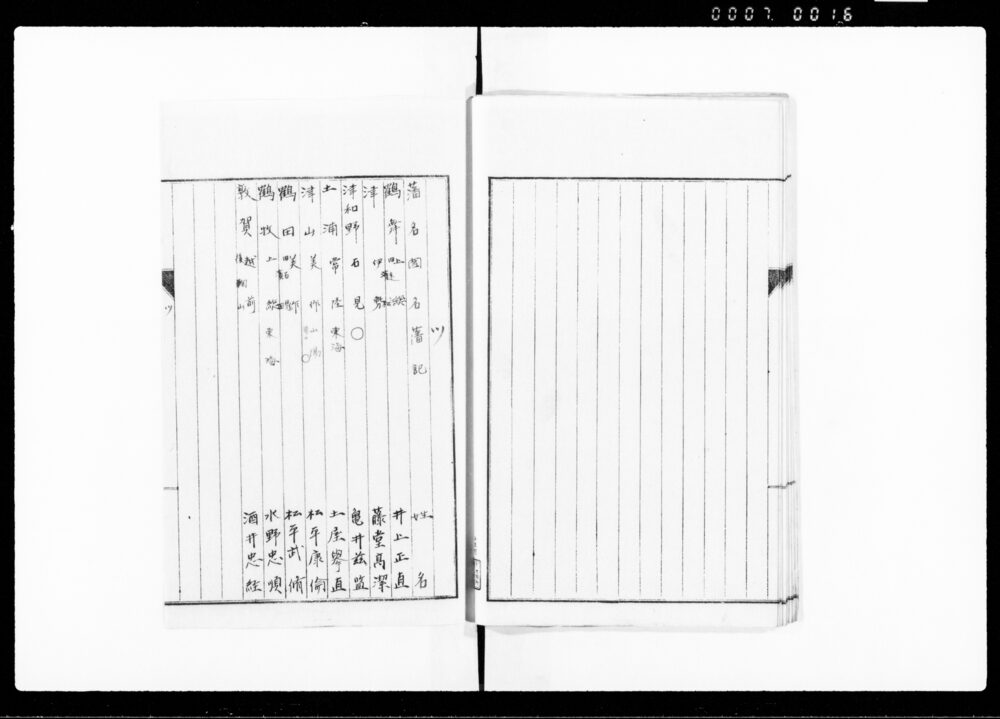 0007 0016
ツ
藩名 国名 藩記 姓名
鶴舞 上総 井上正直
津 伊勢 藤堂高潔
津和野 石見 ○ 亀井茲監
土浦 常陸 東海 土屋挙直
津山 美作 山陽 ○ 松平康倫
鶴田 美作 松平武脩
鶴牧 上総 東海 水野忠順
敦賀 越前 酒井忠経
ツ